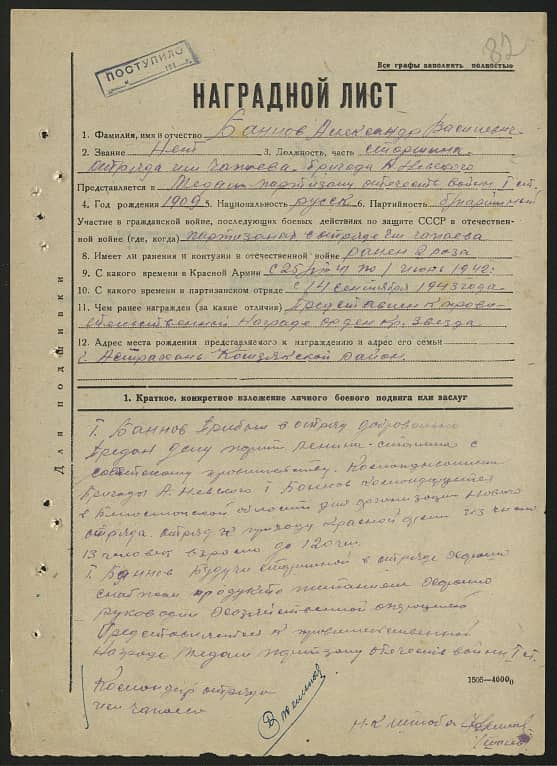 82
Все графы заполнять полностью
ПОСТУПИЛО
НАГРАДНОЙ ЛИСТ
1. Фамилия, имя и отчество Баннов Александр Васильевич
2. Звание Нет 3. Должность, часть старшина
отряда им Чапаева. бригада А. Невского
Представляется к Медаль партизану отечеств войны I ст.
4. Год рождения 1909 5. Национальность русск 6. Партийность б/партийный
Участие в гражданской войне, последующих боевых действиях по защите СССР и отечествен-
ной войне (где, когда) партизаны отряде им Чапаева
8. Имеет ли ранения и контузии в отечественной войне ранен 2 раза
9. С какого времени в Красной Армии С 25 41 по 1 июль 1942г
10. С какого времени в партизанском отряде с 14 сентября 1943 года
11. Чем ранее награжден (за какие отличия) Представлен к прави-
тельственной Награде орден Кр. Звезда
12. Адрес места рождения представляемого к награждению и адрес его семьи
г. Астрахань район.
Для подшивки
1. Краткое, конкретное изложение личного боевого подвига или заслуг
Т. Баннов Прибыл в отряд добровольно
Предан делу парти Ленина-Сталина с
советскому правительству. Командованием
Бригады А. Невского Т Баннов Командируется
в Белостокской области для организации Нового
отряда. отряд к приходу Красной арми из числа
13 человек выросло до 120 чел.
Т. Баннов Будучи старшиной в отряде Хорошо
снабжал продукто питанием Хорошо
руководил Хозяйственной
Представляется к правительственной
Награде Медали партизану отечеств войны I ст.
Командир отряда
им Чапаева
1505—4000
Н-К штаба